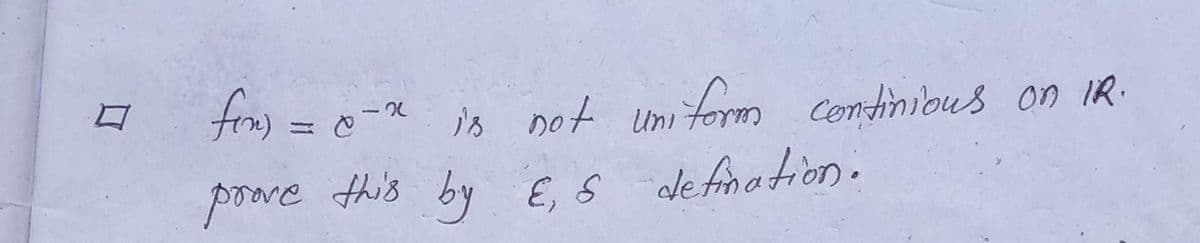 □ f(x) = e^-x is not uniform continious on IR.
prove this by ε, δ defination.